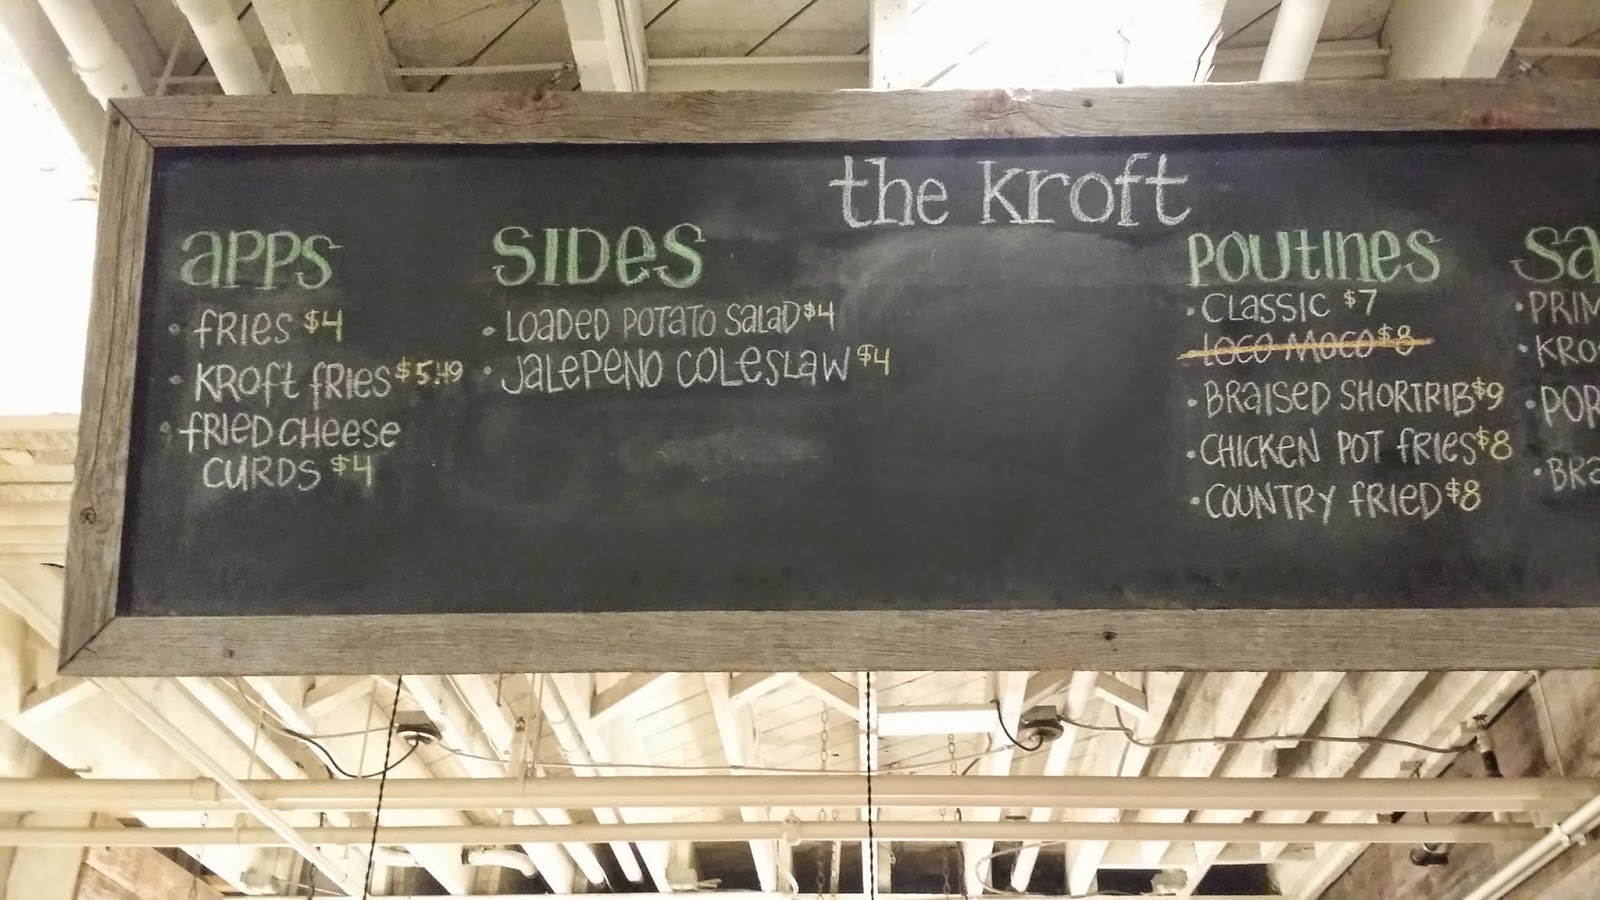 the kroft
apps
• fries $4
• Kroft fries $5.49
• fried cheese
curds $4
SIDES
• LOADED POTATO SALAD $4
• JALEPENO COLESLAW $4
POUTINES
• CLASSIC $7
• LOCO MOCO $8
• BRAISED SHORTRIB $9
• CHICKEN POT FRIES $8
• COUNTRY FRIED $8